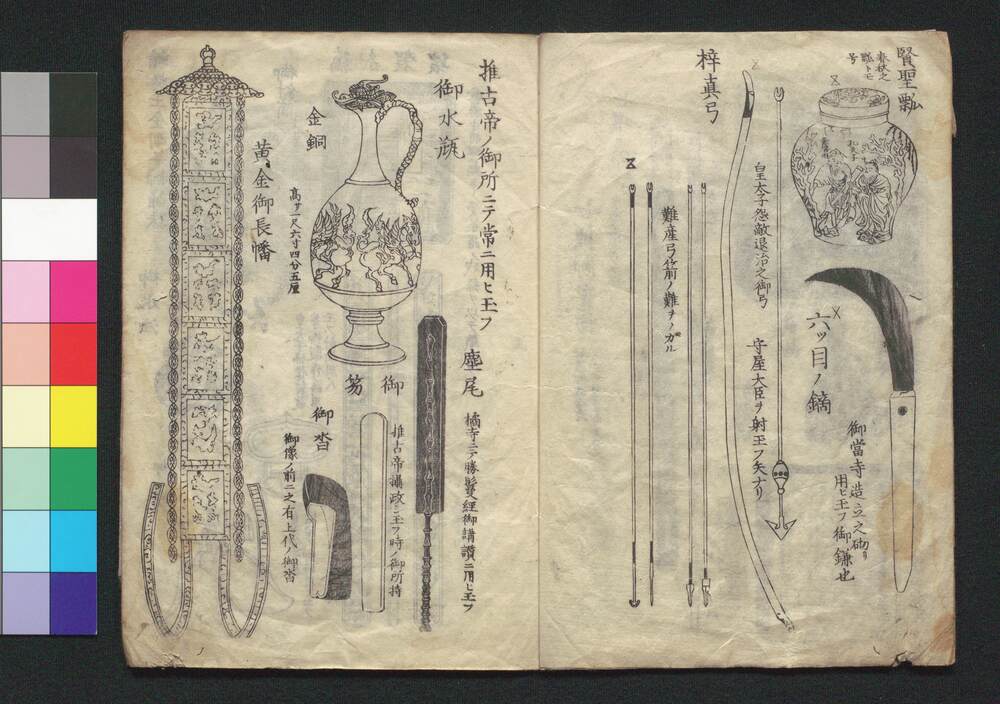 賢聖瓢
春秋之
号
御當寺造立之砌リ
用ヒ王フ御鎌也
六ッ目ノ鏑
守屋大臣ヲ射王フ矢ナリ
皇太子怨敵退治之御弓
梓真弓
難産弓箭ノ難ヲノガル
推古帝ノ御所ニテ常ニ用ヒ王フ
御水瓶
金銅
高サ一尺六寸四分五厘
麈尾
橘寺ニテ勝鬘経御講讃ニ用ヒ王フ
御笏
推古帝攝政シ王フ時ノ御所持
御沓
御像ノ前ニ之有上代ノ御沓
黄金御長幡